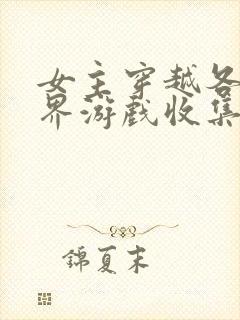 女主穿越各
界游戏收集
錦夏末